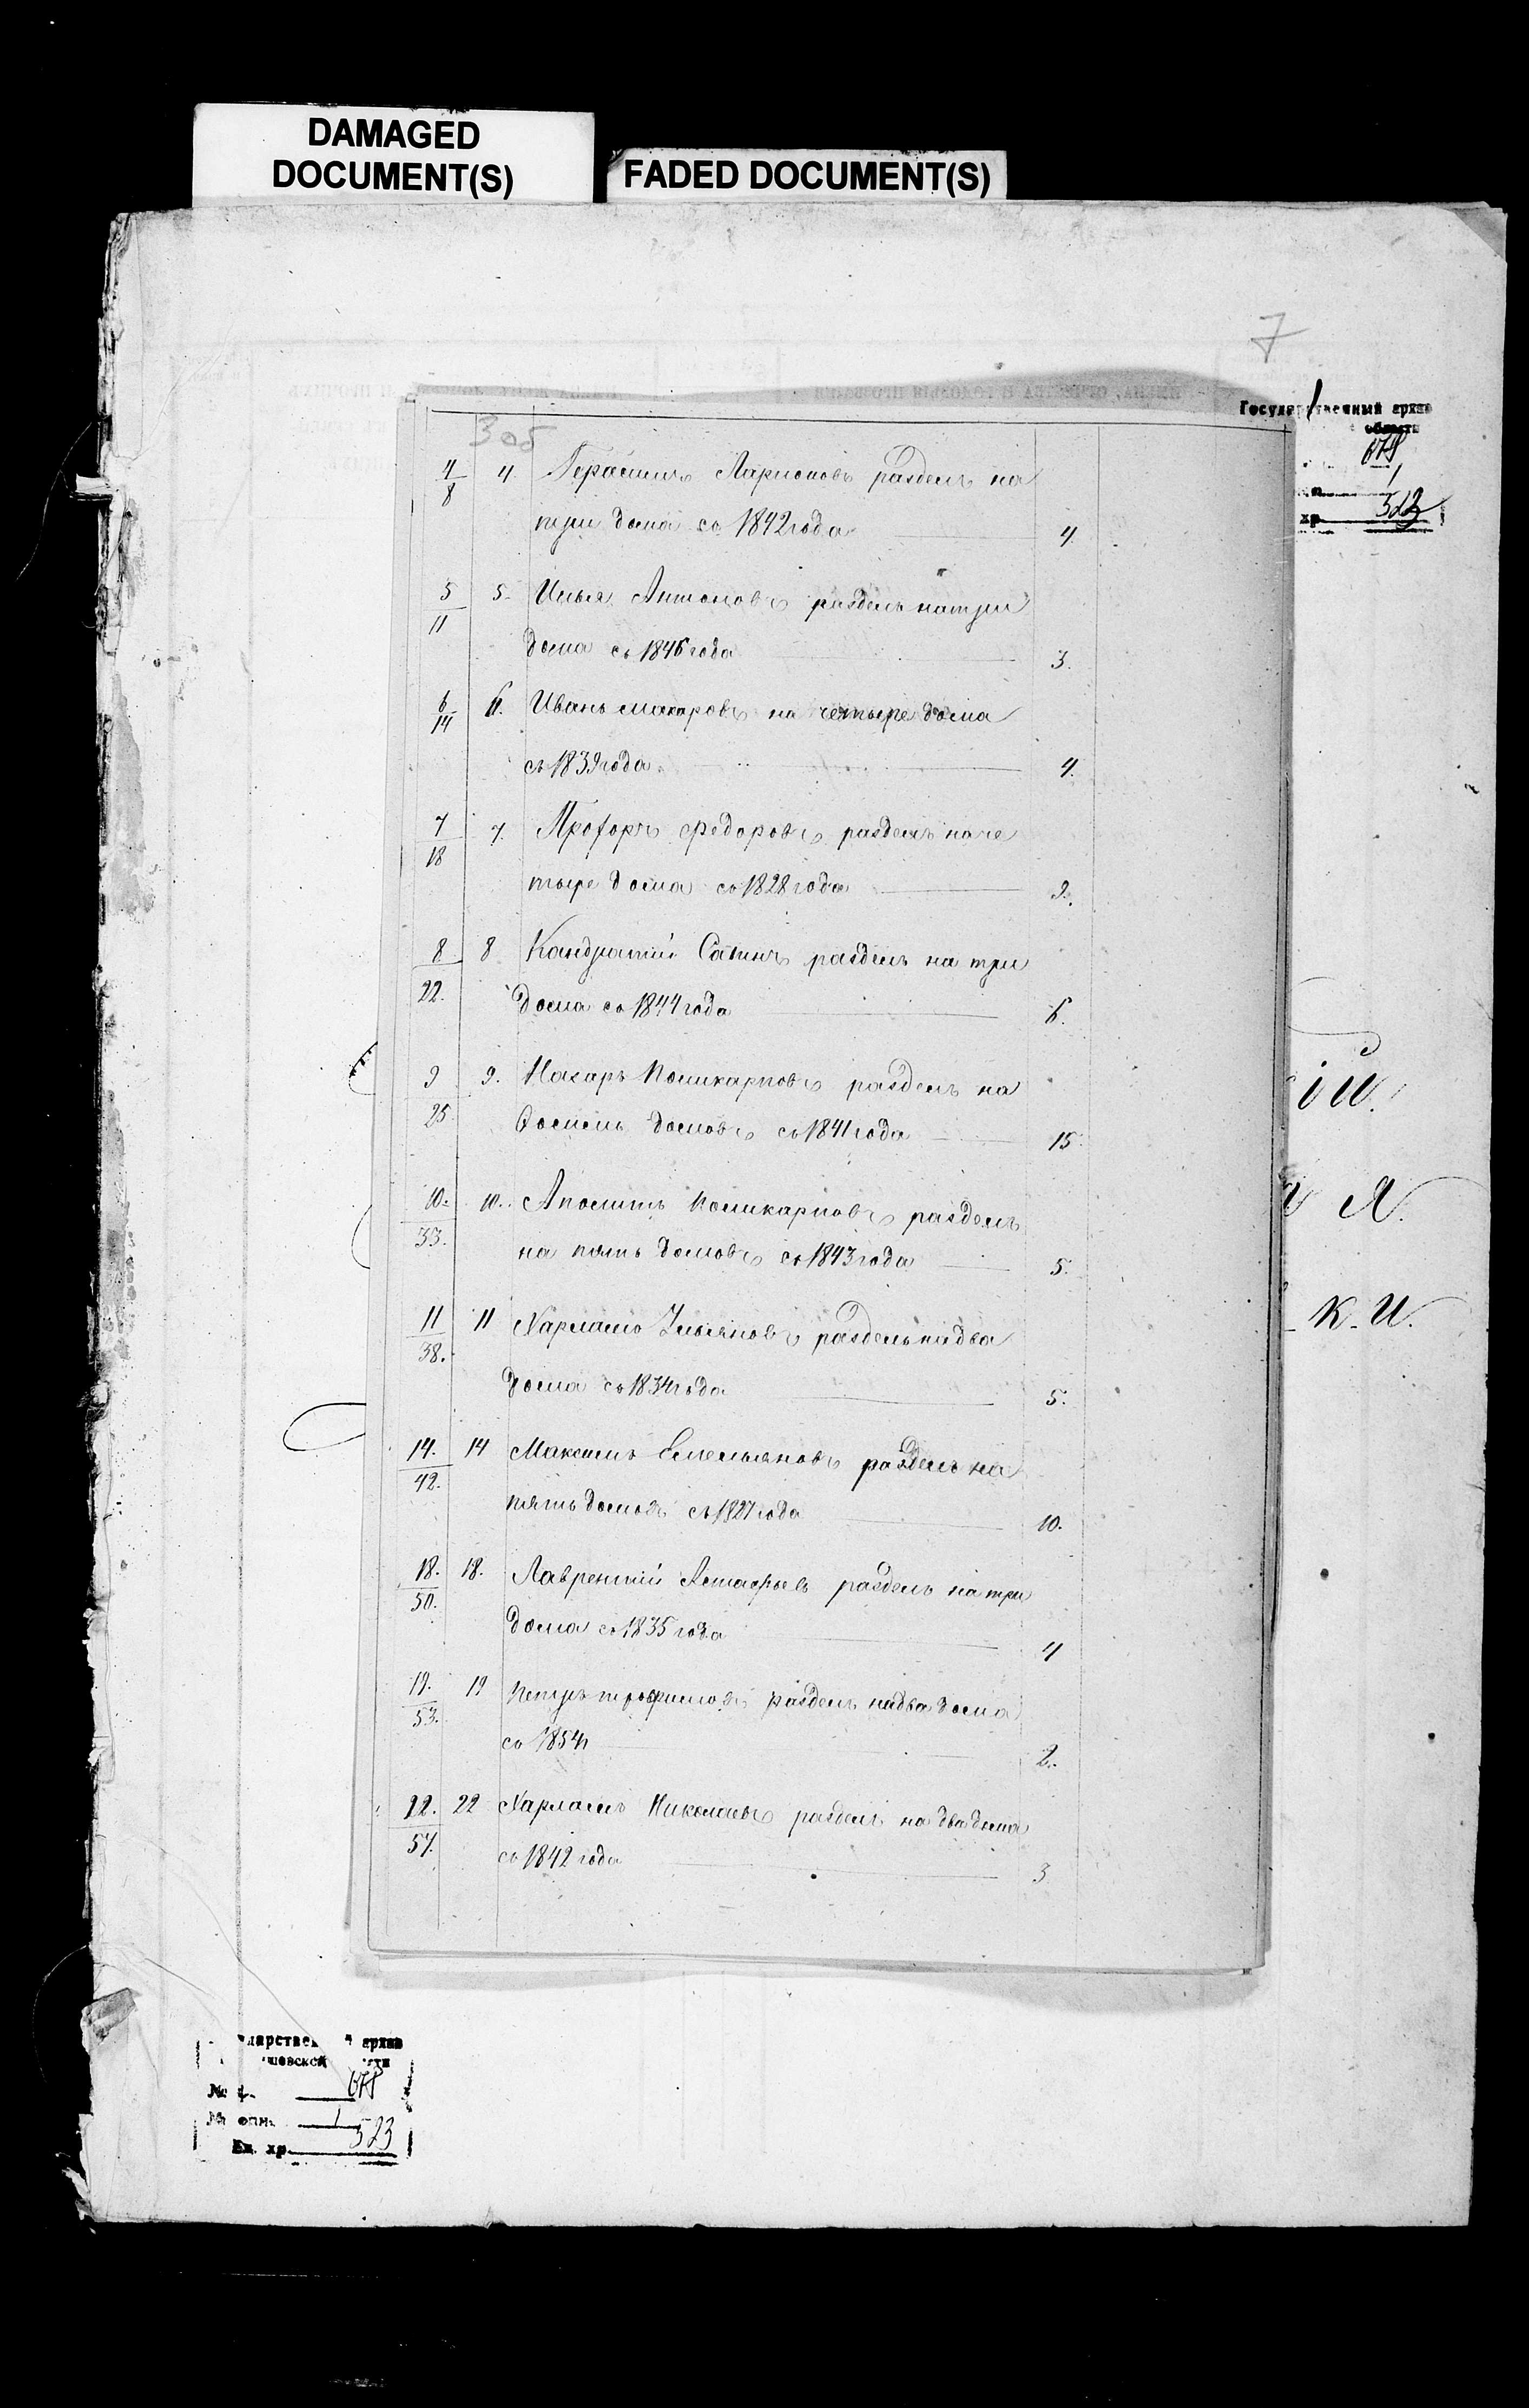 DAMAGED
DOCUMENT(S)
FADED DOCUMENT(S)
7
Государственный архив
области
678
1
хр. 523
305
4/8 4. Герасимъ Ларионовъ разделъ на
три дома съ 1842 года 4.
5/11 5. Илья Антоновъ разделъ на три
дома съ 1846 года 3.
6/14 6. Иванъ макаровъ на четыре дома
съ 1839 года 4.
7/18 7. Прохоръ федоровъ разделъ на че
тыре дома съ 1828 года 9.
8/22. 8 Кандратий Сапинъ разделъ на три
дома съ 1844 года 6.
9/25 9. Назаръ Поликарповъ разделъ на
восемь домовъ съ 1841 года 15.
10./33. 10. Аполитъ Поликарповъ разделъ
на пять домовъ съ 1843 года 5.
11/38. 11 Харламъ Ульяновъ разделъ на два
дома съ 1834 года 5.
14./42. 14 Максимъ Емельяновъ разделъ на
пять домовъ съ 1827 года 10.
18./50. 18. Лаврентий Астафьевъ разделъ на три
дома съ 1835 года 4
19./53. 19 Петръ трофимовъ разделъ на два дома
съ 1854 2.
22./57. 22 Харламъ Николаевъ разделъ на два дома
съ 1842 года 3
ій.
Я.
К. И.
архив
№ ф. 678
№ опи. 1
Ед. хр. 523